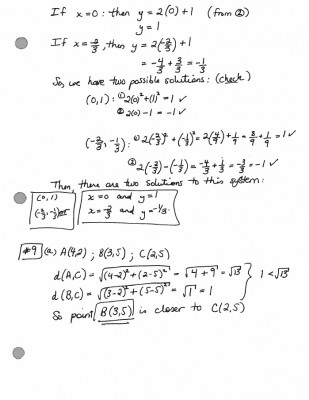 If x=0: then y = 2(0)+1 (from ②)
y = 1
If x = -2/3, then y = 2(-2/3)+1
= -4/3 + 3/3 = -1/3
So, we have two possible solutions: (check)
(0,1): ① 2(0)²+(1)² = 1 ✓
② 2(0)-1 = -1 ✓
(-2/3, -1/3): ① 2(-2/3)²+(-1/3)² = 2(4/9)+1/9 = 8/9+1/9 = 1 ✓
② 2(-2/3)-(-1/3) = -4/3+1/3 = -3/3 = -1 ✓
Then, there are two solutions to this system:
(0,1) x=0 and y=1
(-2/3, -1/3) x=-2/3 and y=-1/3.
#9 (a) A(4,2) ; B(3,5) ; C(2,5)
d(A,C) = √((4-2)²+(2-5)²) = √(4+9) = √13
d(B,C) = √((3-2)²+(5-5)²) = √1 = 1
} 1 < √13
So point B(3,5) is closer to C(2,5)